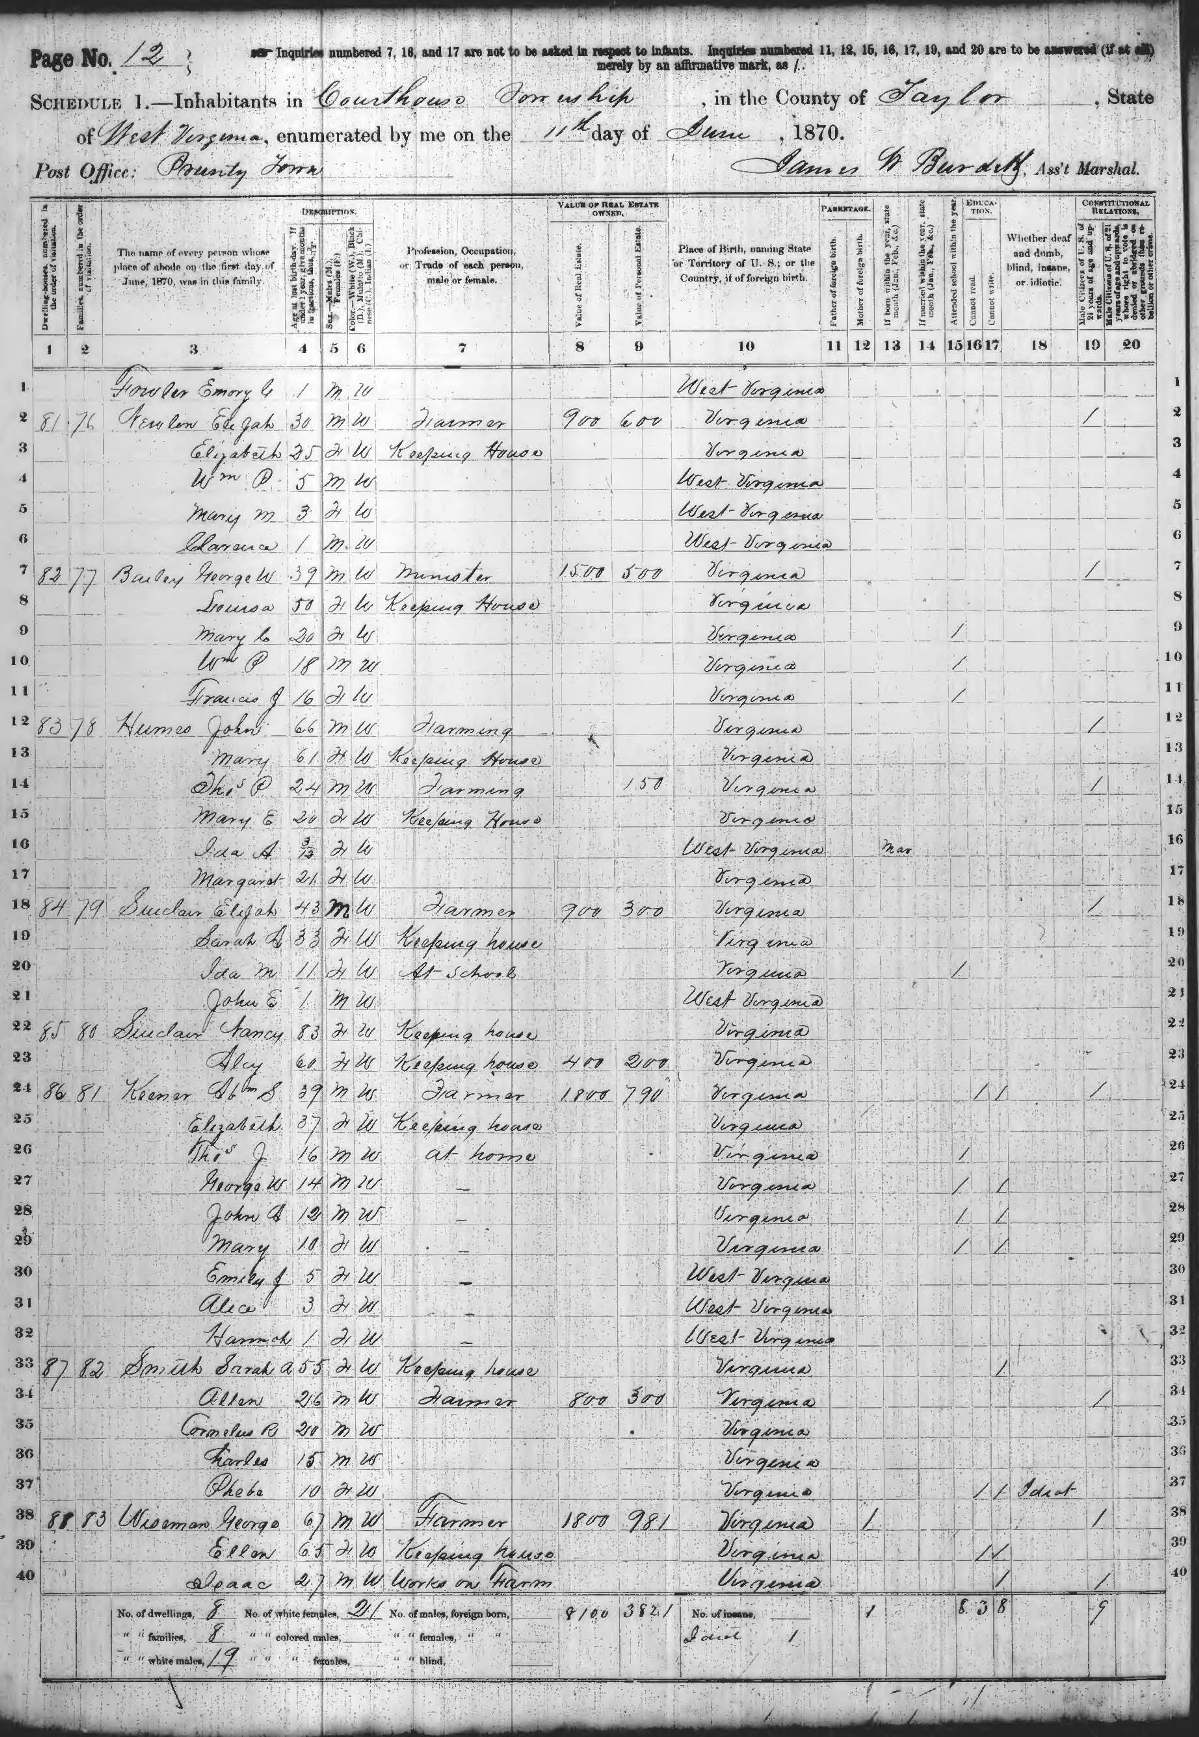 Page No. 12
Inquiries numbered 7, 16, and 17 are not to be asked in respect to infants. Inquiries numbered 11, 12, 15, 16, 17, 19, and 20 are to be answered (if at all)
merely by an affirmative mark, as /.
SCHEDULE 1.—Inhabitants in Courthouse Township, in the County of Taylor, State
of West Virginia, enumerated by me on the 11th day of June, 1870.
Post Office: Prunty Town James W Burdett, Ass't Marshal.
Dwelling-houses, numbered in the order of visitation.
Families, numbered in the order of visitation.
The name of every person whose place of abode on the first day of June, 1870, was in this family.
DESCRIPTION.
Age at last birth-day. If under 1 year, give months in fractions, thus, 3/12.
Sex.—Males (M.), Females (F.)
Color.—White (W.), Black (B.), Mulatto (M.), Chinese (C.), Indian (I.)
Profession, Occupation, or Trade of each person, male or female.
VALUE OF REAL ESTATE OWNED.
Value of Real Estate.
Value of Personal Estate.
Place of Birth, naming State or Territory of U. S.; or the Country, if of foreign birth.
PARENTAGE.
Father of foreign birth.
Mother of foreign birth.
If born within the year, state month (Jan., Feb., &c.)
If married within the year, state month (Jan., Feb., &c.)
EDUCATION.
Attended school within the year.
Cannot read.
Cannot write.
Whether deaf and dumb, blind, insane, or idiotic.
CONSTITUTIONAL RELATIONS.
Male Citizens of U. S. of 21 years of age and upwards.
Male Citizens of U. S. of 21 years of age and upwards, where right to vote is denied or abridged on other grounds than rebellion or other crime.
1 2 3 4 5 6 7 8 9 10 11 12 13 14 15 16 17 18 19 20
1 Fowler Emory C 1 M W West Virginia 1
2 81 76 Newlon Elijah 30 M W Farmer 900 600 Virginia / 2
3 Elizabeth 25 F W Keeping House Virginia 3
4 Wm P 5 M W West Virginia 4
5 Mary M 3 F W West Virginia 5
6 Clarence 1 M W West Virginia 6
7 82 77 Bailey George W 39 M W Minister 1500 500 Virginia / 7
8 Louisa 50 F W Keeping House Virginia 8
9 Mary C 20 F W Virginia / 9
10 Wm P 18 M W Virginia / 10
11 Francis J 16 F W Virginia / 11
12 83 78 Humes John 66 M W Farming Virginia / 12
13 Mary 61 F W Keeping House Virginia 13
14 Thos P 24 M W Farming 150 Virginia / 14
15 Mary E 20 F W Keeping House Virginia 15
16 Ida A 3/12 F W West Virginia Mar 16
17 Margaret 21 F W Virginia 17
18 84 79 Sinclair Elijah 43 M W Farmer 900 300 Virginia / 18
19 Sarah A 33 F W Keeping house Virginia 19
20 Ida M 11 F W At School Virginia / 20
21 John E 1 M W West Virginia 21
22 85 80 Sinclair Nancy 83 F W Keeping house Virginia 22
23 Alcy 60 F W Keeping house 400 200 Virginia 23
24 86 81 Keener Abm S 39 M W Farmer 1800 790 Virginia / / / 24
25 Elizabeth 37 F W Keeping house Virginia 25
26 Thos J 16 M W at home Virginia / 26
27 George W 14 M W – Virginia / / 27
28 John A 12 M W – Virginia / / 28
29 Mary 10 F W – Virginia / / 29
30 Emily J 5 F W – West Virginia 30
31 Alice 3 F W – West Virginia 31
32 Hannah 1 F W – West Virginia 32
33 87 82 Smith Sarah A 55 F W Keeping house Virginia / 33
34 Allen 26 M W Farmer 800 300 Virginia / 34
35 Cornelus B 20 M W Virginia 35
36 Charles 15 M W Virginia 36
37 Pheba 10 F W Virginia / / Idiot 37
38 88 83 Wiseman George 67 M W Farmer 1800 981 Virginia / / 38
39 Ellen 65 F W Keeping house Virginia / / 39
40 Isaac 27 M W Works on Farm Virginia / / 40
No. of dwellings, 8 No. of white females, 21 No. of males, foreign born, 8100 3821 No. of insane, 1 8 3 8 9
" " families, 8 " " colored males, " " females, " " Idiot 1
" " white males, 19 " " " females, " " blind,